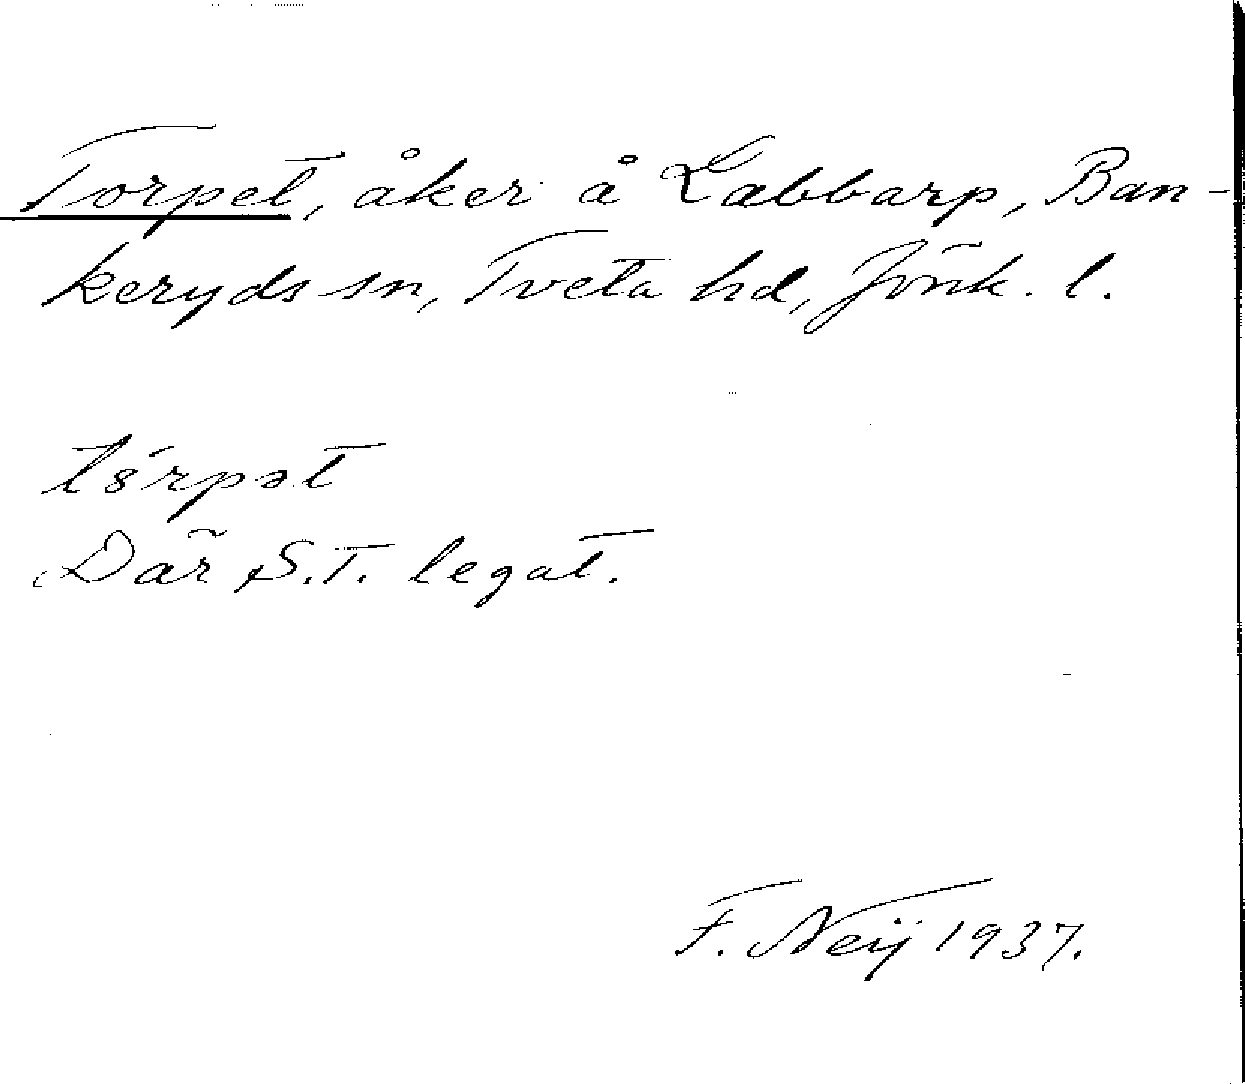 Torpet, åker å Labbarp, Ban-
keryds sn, Tveta hd, Jönk. l.
Där S.T. legat.
F. Neij 1937.